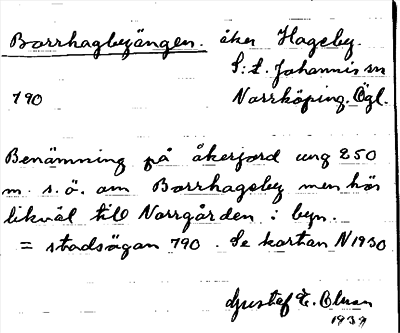 Borrhagbezängen. åker Hageby.
S:t. Johannis sn
790 Norrköping. Ögl.
Benämning på åkerjord ung 250
m. s.ö. om Borrhagsby men hör
likväl till Norrgården i byn.
= stadsägan 790. Se kartan N 1930
Gustaf E. Olsson
1937